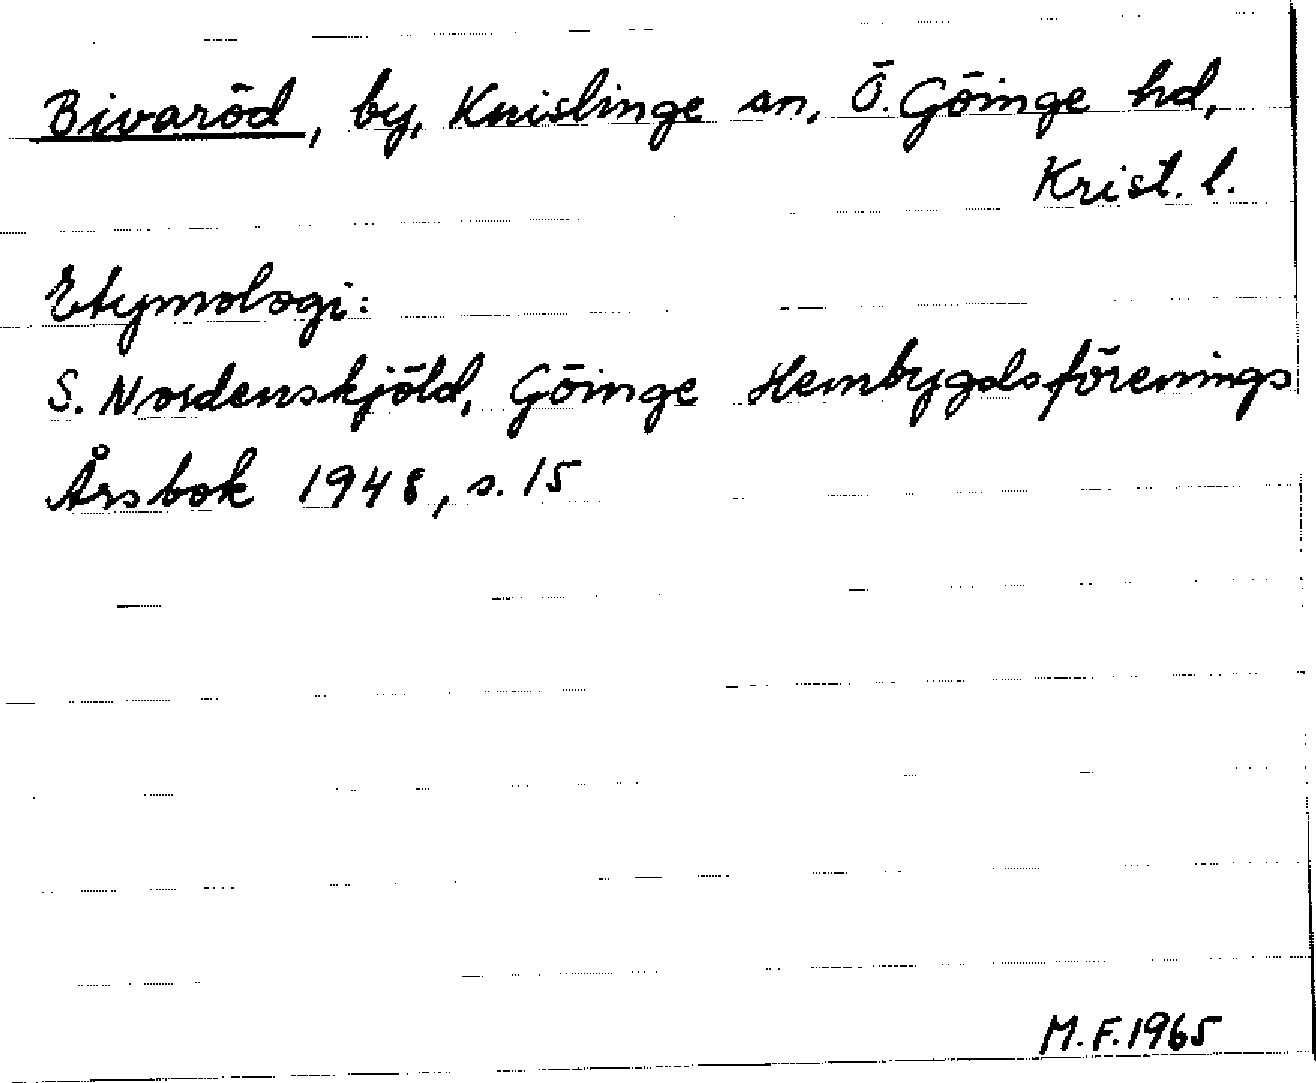 Bivaröd, by, Knislinge sn, Ö. Göinge hd,
Krist. l.
Etymologi:
S. Nordenskjöld, Göinge Hembygdsförenings
Årsbok 1948, s. 15
M.F. 1965